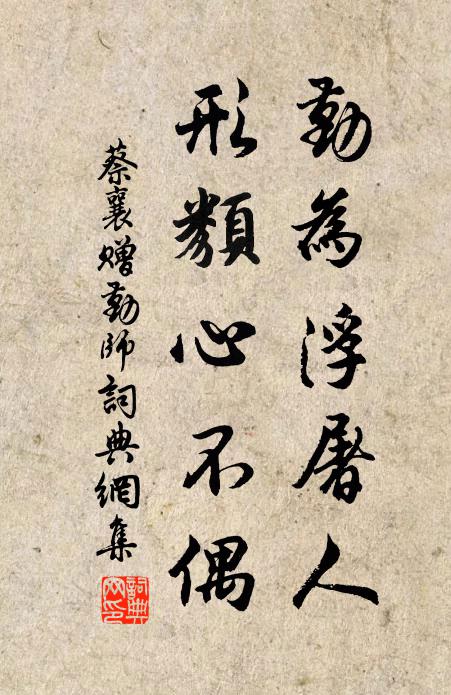 勤為浮屠人
形類心不偶
蔡襄贈勤師詞典網集
詞典
网印